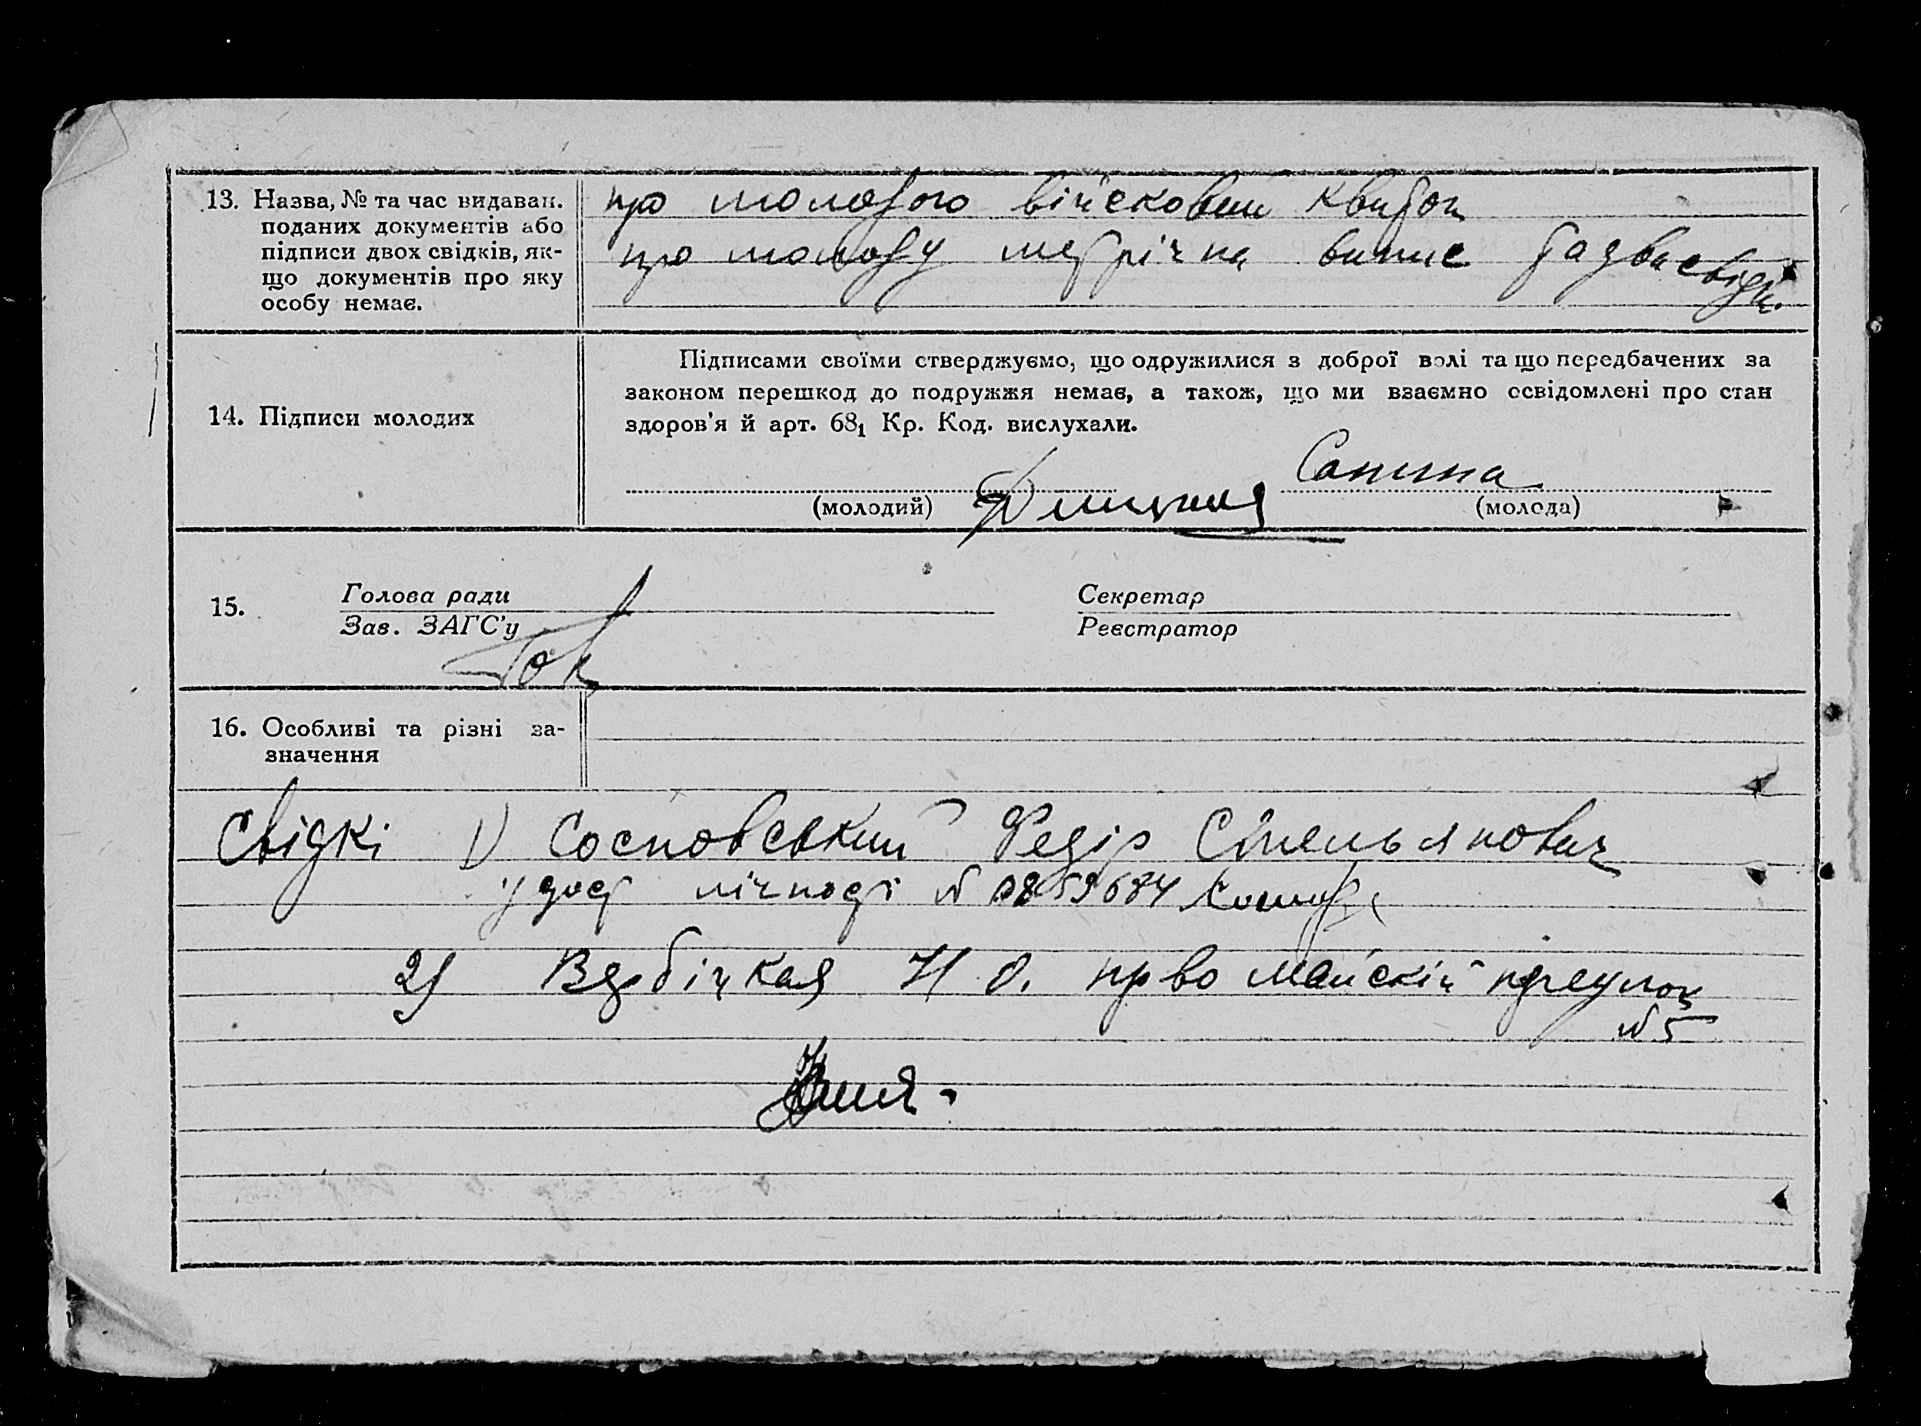 13. Назва, № та час видаван.
поданих документів або
підписи двох свідків, як-
що документів про яку
особу немає.
про молодого військовий квиток
про молоду метрічна випис та два свідк.
14. Підписи молодих
Підписами своїми стверджуємо, що одружилися з доброї волі та що передбачених за
законом перешкод до подружжя немає, а також, що ми взаємно освідомлені про стан
здоров'я й арт. 68₁ Кр. Код. вислухали.
Санина
(молодий)
(молода)
15.
Голова ради
Зав. ЗАГС'у
Секретар
Реєстратор
16. Особливі та різні за-
значення
Свідкі 1) Сосновський Федір
удост лічності № 0859684
2) Вербіцкая Н О. прво майскій преулок
№ 5